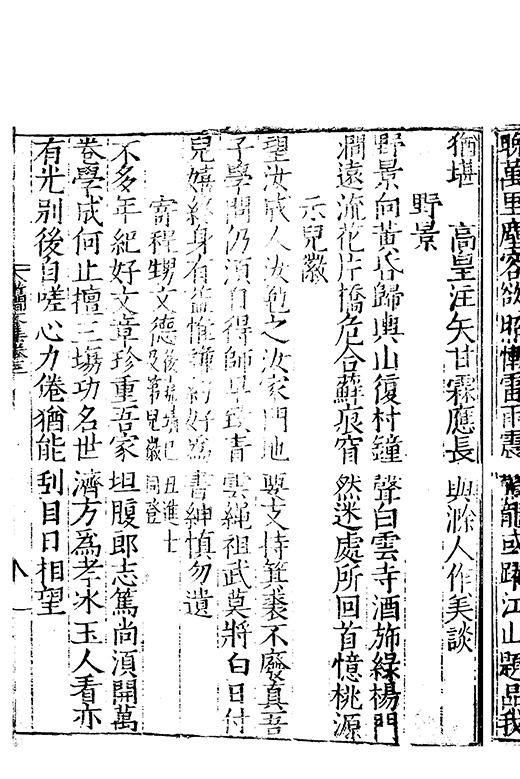 晚萬里塵客欲照慚雷雨震驚龍或躍江山題品我
猶堪　高皇注矢甘霖應長與滁人作美談
野景
野景向黃昏歸輿山復村鐘聲白雲寺酒斾綠楊門
澗遠流花片橋危合蘚痕窅然迷處所回首憶桃源
示兒徽
望汝成人汝勉之汝家門地要支持箕裘不廢真吾
子學問仍須自得師早致青雲繩祖武莫將白日付
兒嬉終身有益惟謙約好為書紳慎勿遺
寄稺甥文德後蔬靖巳丑進士及第兒徽同登
不多年紀好文章珍重吾家坦腹郎志篤尚須開萬
卷學成何止擅三場功名世濟方為孝冰玉人看亦
有光別後自嗟心力倦猶能刮目日相望